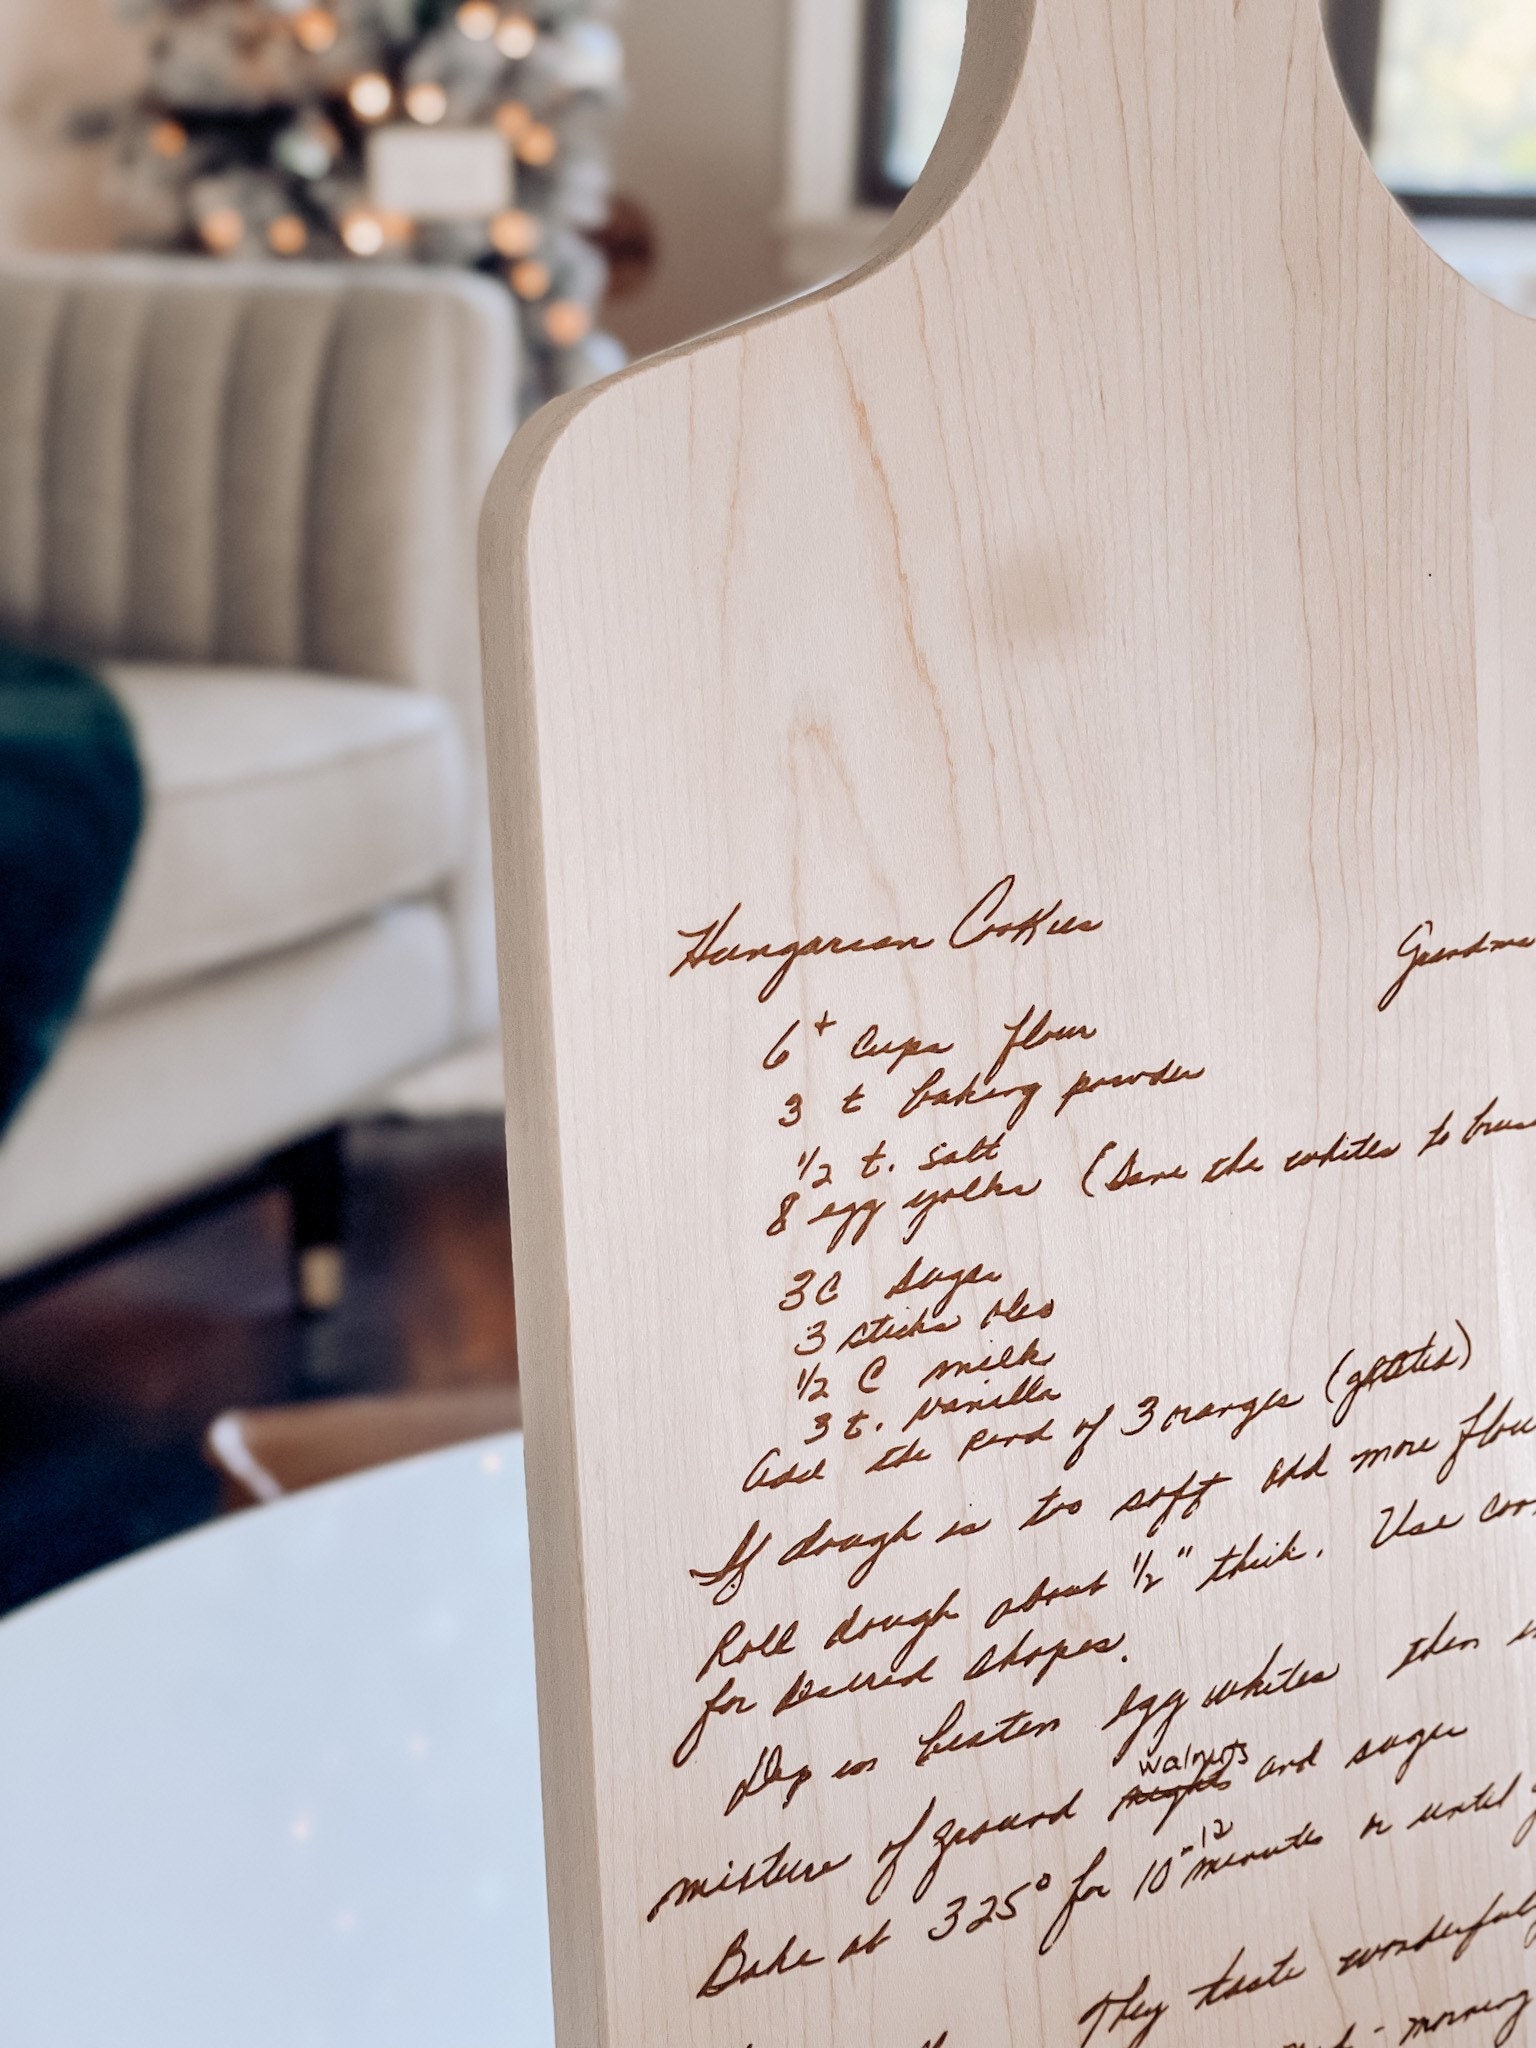 Hungarian Cookies Grandma
6+ cups flour
3 t baking powder
1/2 t. salt
8 egg yolks (Save the whites to
3 C sugar
3 sticks oleo
1/2 C milk
3 t. vanilla
add the rind of 3 oranges (grated)
If dough is too soft add more flou
Roll dough about 1/2" thick. Use
for desired shapes.
Dip in beaten egg whites then
walnuts
mixture of ground nights and sugar
Bake at 325° for 10-12 minutes or until
They taste wonderful
morning